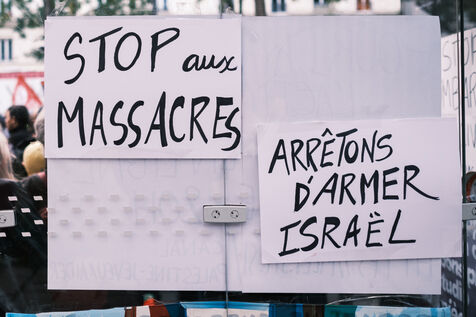 STOP aux
MASSACRES
ARRÊTONS
D'ARMER
ISRAËL